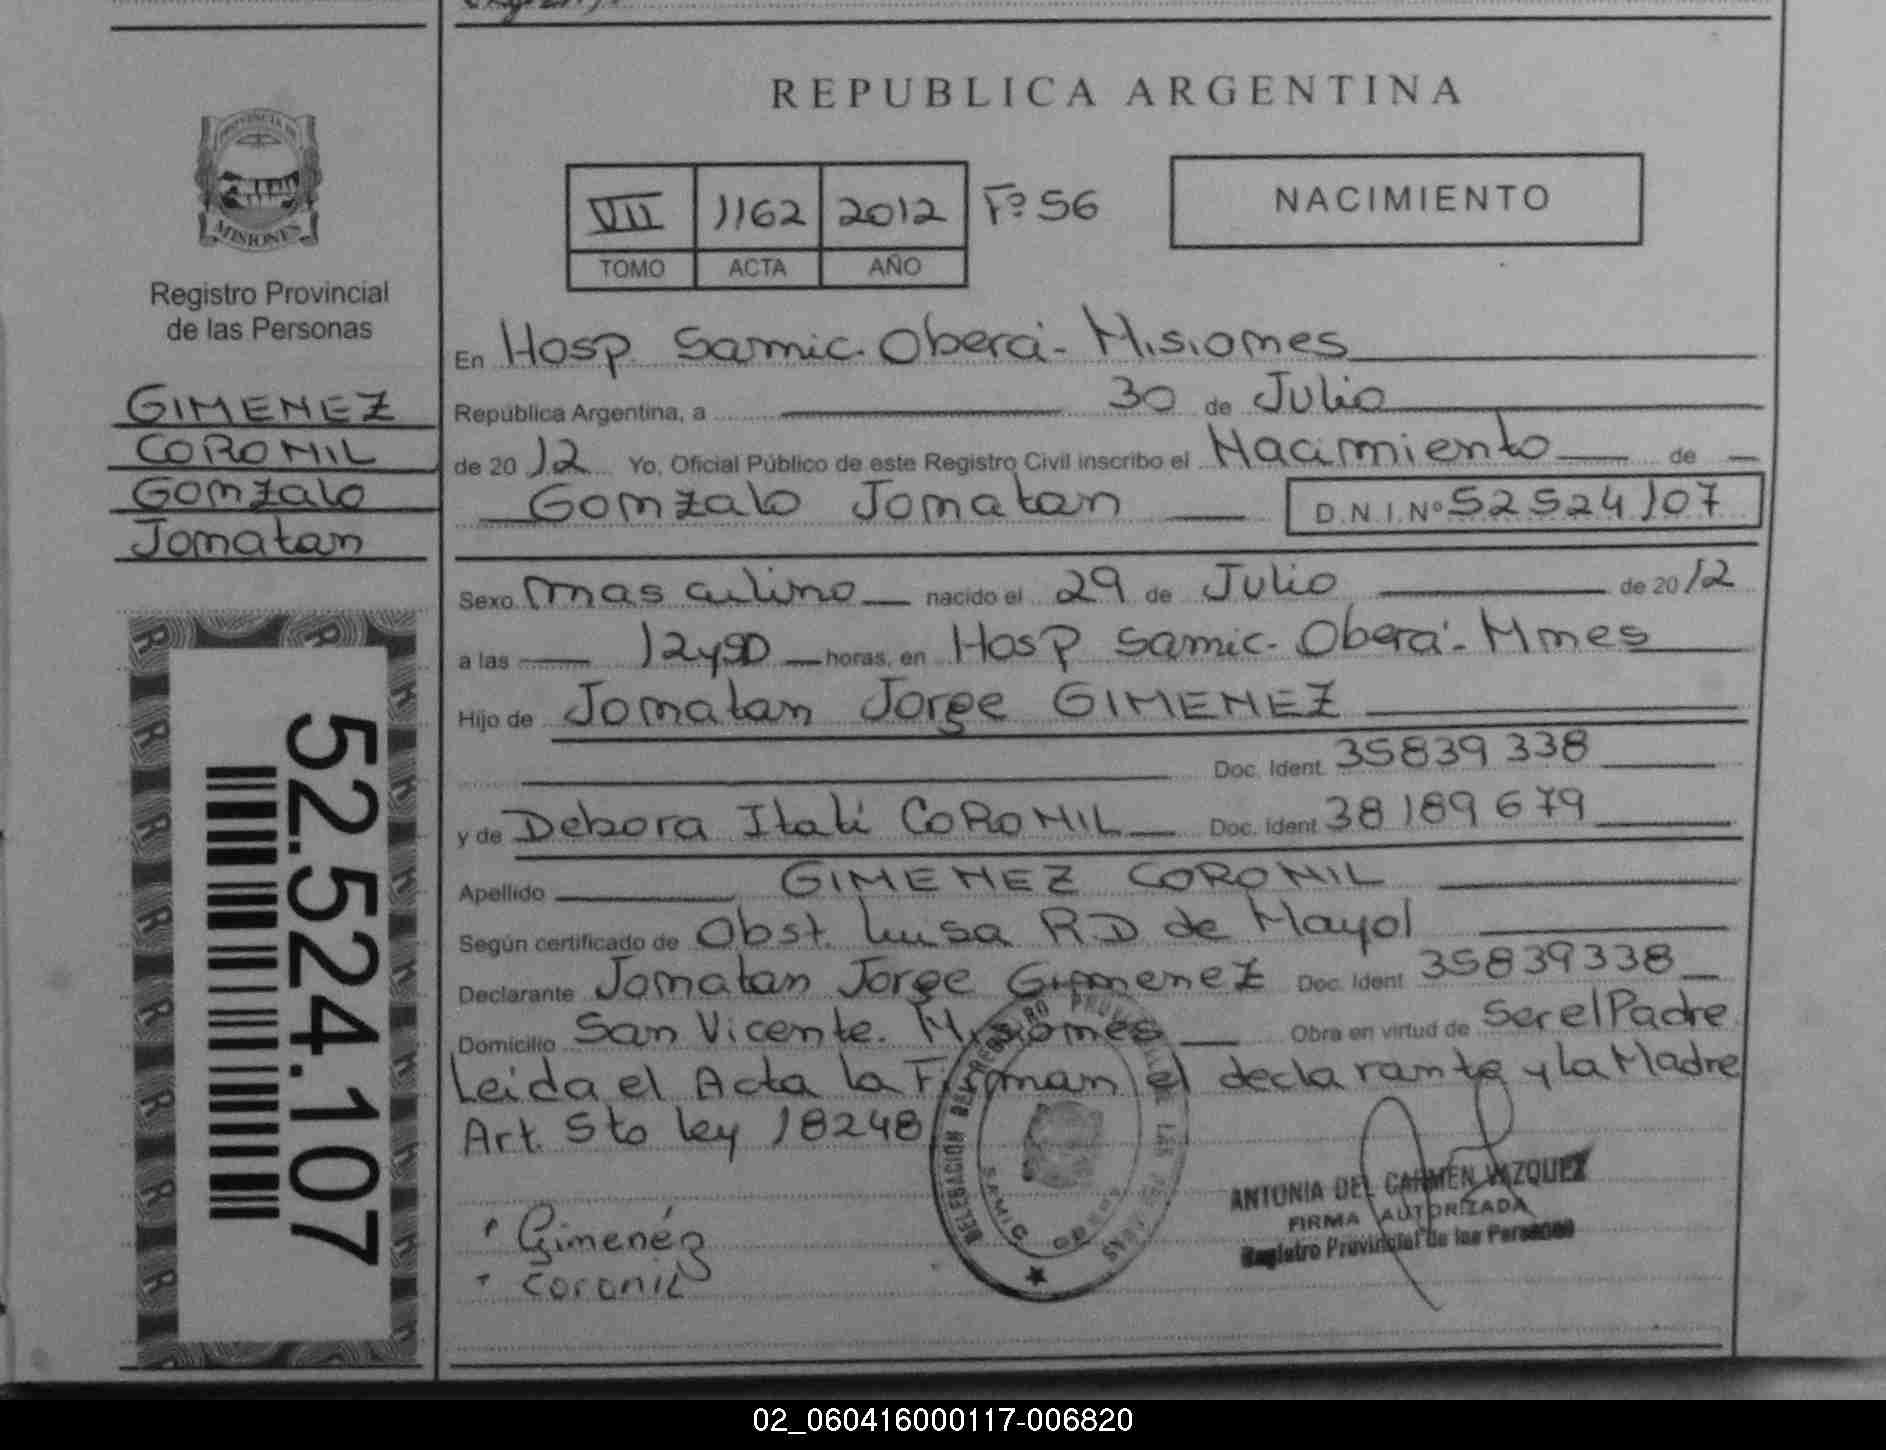 REPUBLICA ARGENTINA
PROVINCIA DE
MISIONES
Registro Provincial
de las Personas
GIMENEZ
CORONIL
Gonzalo
Jonatan
52.524.107
VII 1162 2012 Fº 56
TOMO ACTA AÑO
NACIMIENTO
En Hosp Samic. Oberá - Misiones
República Argentina, a 30 de Julio
de 2012 Yo, Oficial Público de este Registro Civil inscribo el Nacimiento de
Gonzalo Jonatan D.N.I. Nº 52524107
Sexo masculino nacido el 29 de Julio de 2012
a las 12y50 horas, en Hosp Samic - Oberá - Mnes
Hijo de Jonatan Jorge GIMENEZ
Doc. Ident. 35839338
y de Debora Itati CORONIL Doc. Ident 38189679
Apellido GIMENEZ CORONIL
Según certificado de Obst. Luisa RD de Mayol
Declarante Jonatan Jorge Gimenez Doc. Ident 35839338
Domicilio San Vicente. Misiones Obra en virtud de Ser el Padre
Leida el Acta la Firman el declarante y la Madre
Art. 5to ley 18248
Gimenéz
Coronil
DELEGACION DEL REGISTRO PROVINCIAL DE LAS PERSONAS
SAMIC OBERA
ANTONIA DEL CARMEN VAZQUEZ
FIRMA AUTORIZADA
Registro Provincial de las Personas
02_060416000117-006820